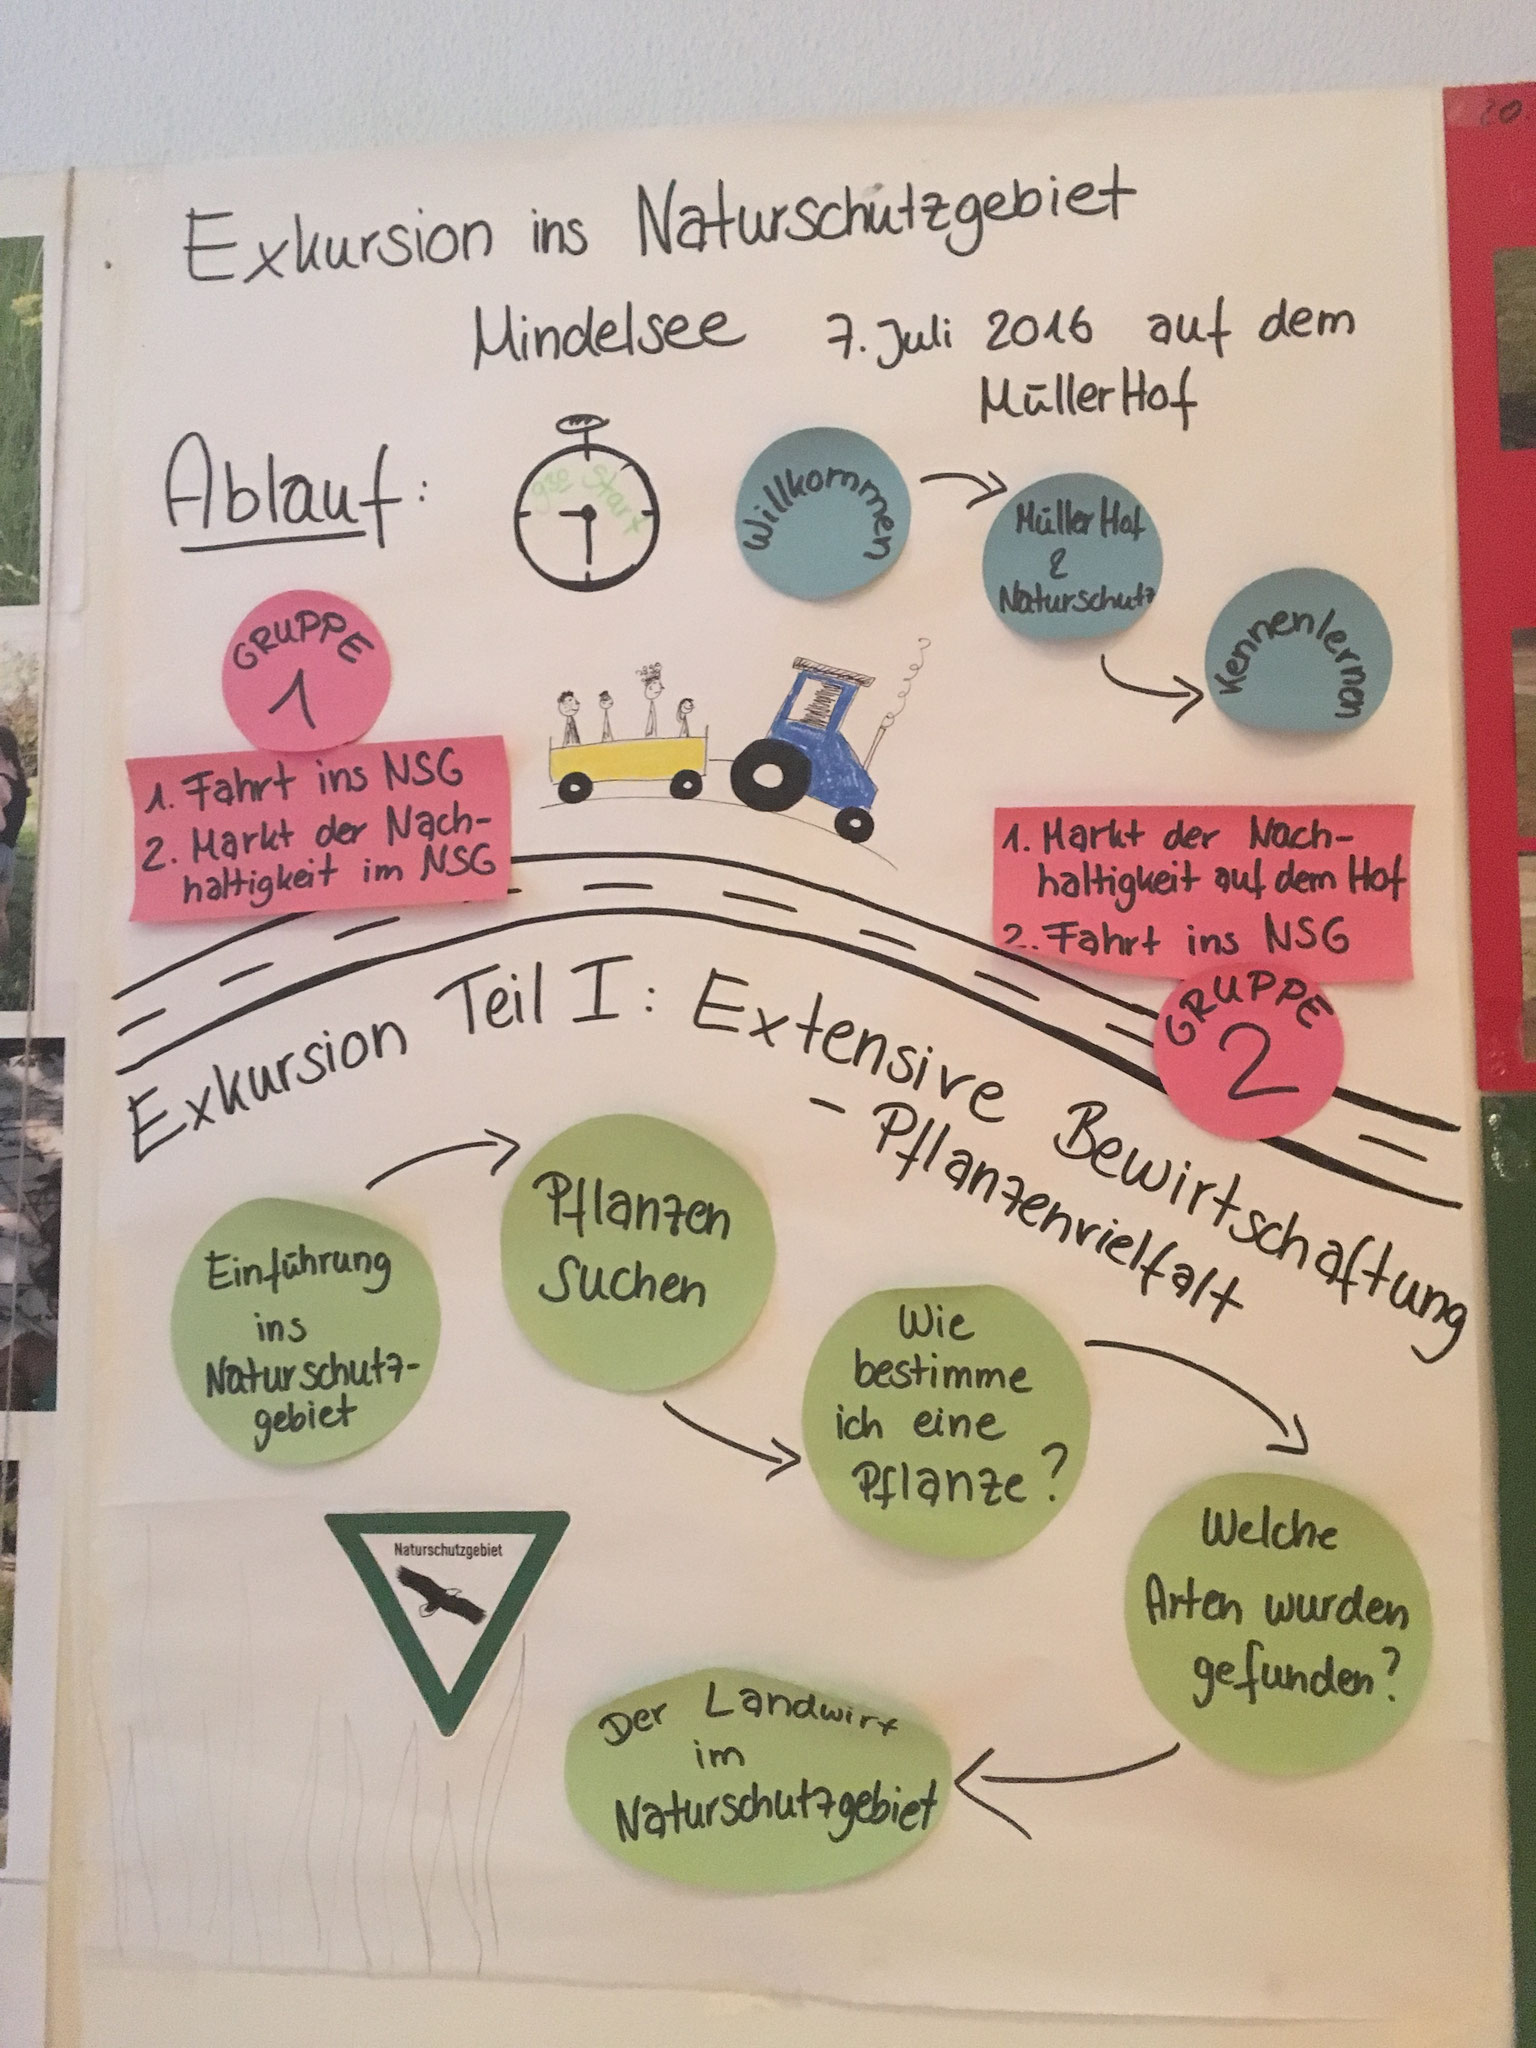 20
Exkursion ins Naturschutzgebiet
Mindelsee 7. Juli 2016 auf dem
MüllerHof
Ablauf:
Start
Willkommen
MüllerHof
&
Naturschutz
Kennenlernen
GRUPPE
1
1. Fahrt ins NSG
2. Markt der Nach-
haltigkeit im NSG
1. Markt der Nach-
haltigkeit auf dem Hof
2. Fahrt ins NSG
GRUPPE
2
Exkursion Teil I: Extensive Bewirtschaftung
- Pflanzenvielfalt
Einführung
ins
Naturschutz-
gebiet
Pflanzen
Suchen
Wie
bestimme
ich eine
Pflanze?
Welche
Arten wurden
gefunden?
Naturschutzgebiet
Der Landwirt
im
Naturschutzgebiet